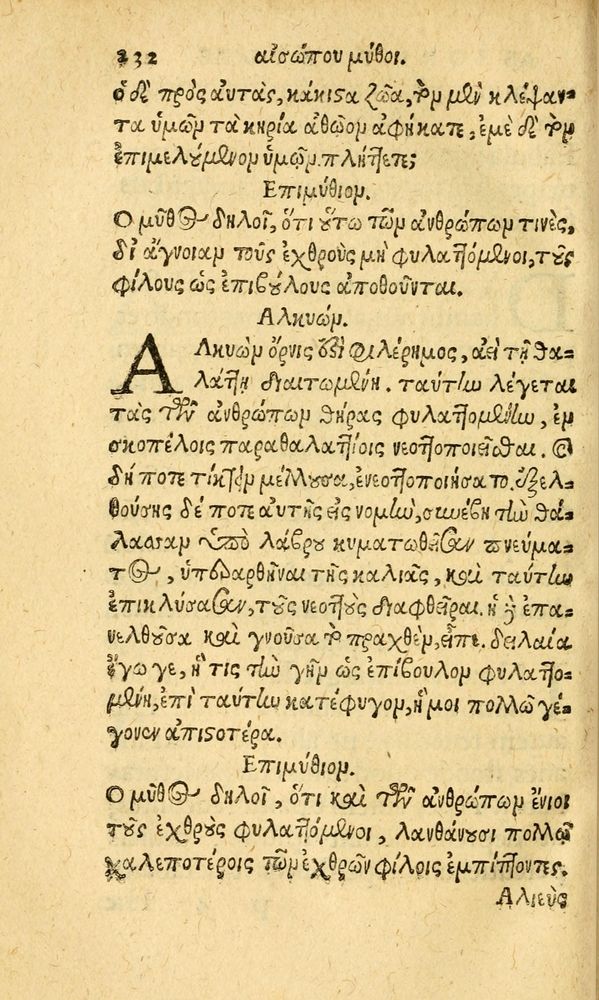 232 αἰσώπου μύθοι.
ὁ δὲ πρὸς ἀυτὰς, κάκιστα ζῶα, τὸν μὲν κλέψαν-
τα ὑμῶν τὰ κηρία ἀθῶον ἀφήκατε, ἐμὲ δὲ τὸν
ἐπιμελούμενον ὑμῶν πλήττετε;
Ἐπιμύθιον.
Ο μῦθος δηλοῖ, ὅτι οὕτω τῶν ἀνθρώπων τινὲς,
δι' ἄγνοιαν τοὺς ἐχθροὺς μὴ φυλαττόμενοι, τοὺς
φίλους ὡς ἐπιβούλους ἀποθοῦνται.
Αλκυών.
ΑΛκυὼν ὄρνις ἐστὶ φιλέρημος, ἀεὶ τῇ θα-
λάττῃ διαιτωμένη. ταύτην λέγεται
τὰς τῶν ἀνθρώπων θήρας φυλαττομένην, ἐν
σκοπέλοις παραθαλαττίοις νεοττοποιεῖσθαι. καὶ
δή ποτε τίκτειν μέλλουσα, ἐνεοττοποιήσατο. ἐξελ-
θούσης δέ ποτε αυτῆς εἰς νομὴν, συνέβη τὴν θά-
λασσαν ὑπὸ λάβρου κυματωθεῖσαν πνεύμα-
τος, ὑπεραρθῆναι τῆς καλιᾶς, καὶ ταύτην
ἐπικλύσασαν, τοὺς νεοττοὺς διαφθεῖραι. ἡ δὲ ἐπα-
νελθοῦσα καὶ γνοῦσα τὸ πραχθὲν, εἶπε. δειλαία
ἔγωγε, ἥτις τὴν γῆν ὡς ἐπίβουλον φυλαττο-
μένη, ἐπὶ ταύτην κατέφυγον, ἥ μοι πολλῷ γέ-
γονεν ἀπιστοτέρα.
Ἐπιμύθιον.
Ο μῦθος δηλοῖ, ὅτι καὶ τῶν ἀνθρώπων ἔνιοι
τοὺς ἐχθροὺς φυλαττόμενοι, λανθάνουσι πολλῷ
χαλεποτέροις τῶν ἐχθρῶν φίλοις ἐμπίπτοντες.
Αλιεὺς